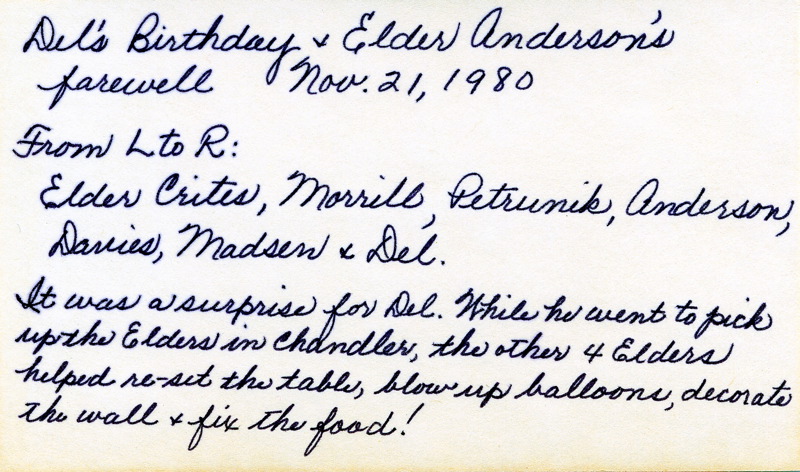 Del's Birthday & Elder Anderson's
farewell Nov. 21, 1980
From L to R:
Elder Crites, Morrill, Petrunik, Anderson,
Davies, Madsen & Del.
It was a surprise for Del. While he went to pick
up the Elders in Chandler, the other 4 Elders
helped re-set the table, blow up balloons, decorate
the wall & fix the food!